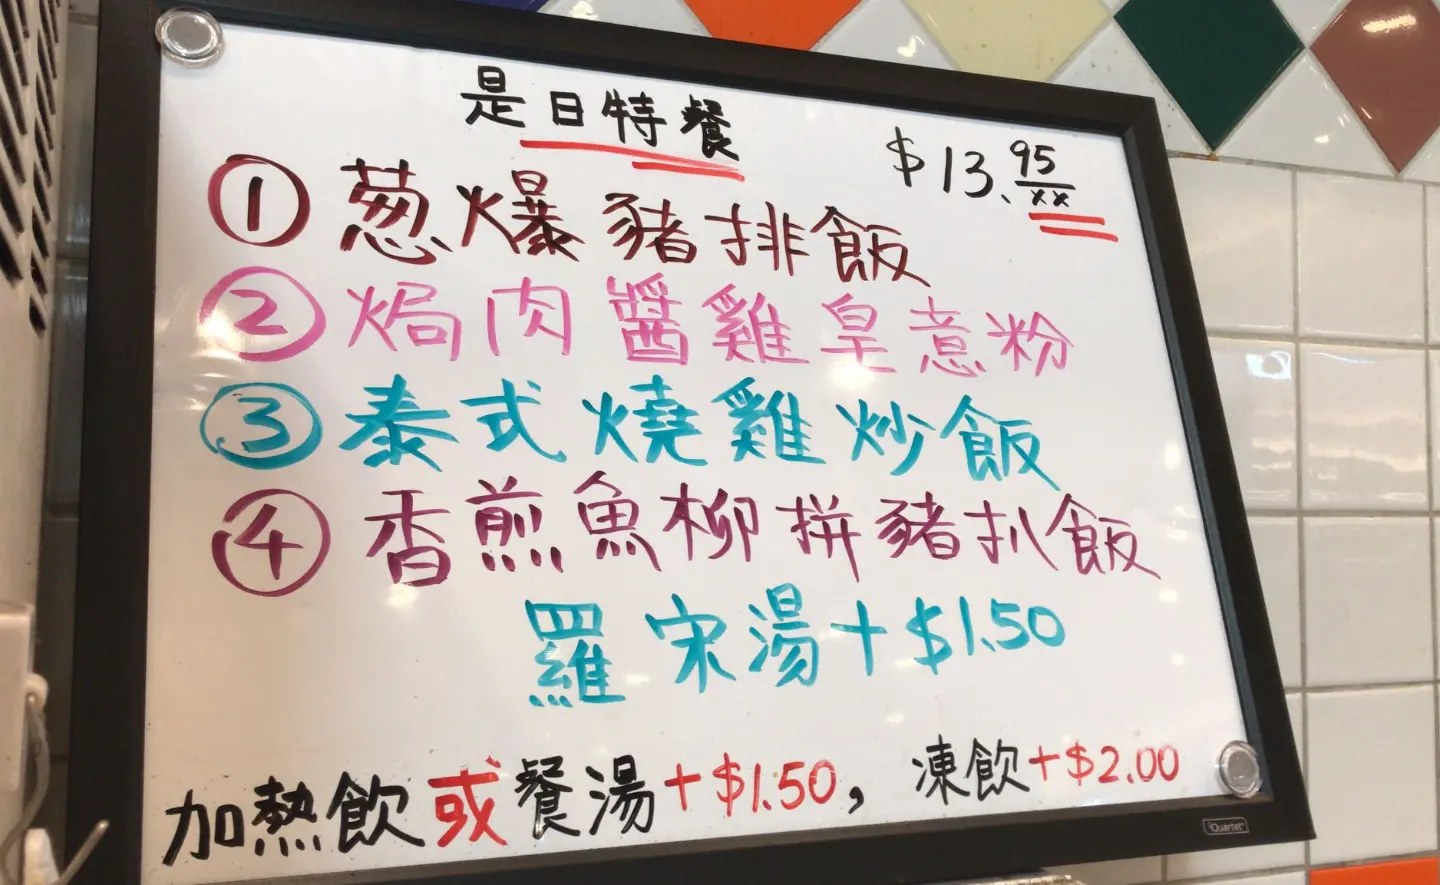 是日特餐
$13.95/xx
① 葱爆豬排飯
② 焗肉醬雞皇意粉
③ 泰式燒雞炒飯
④ 香煎魚柳拼豬扒飯
羅宋湯+$1.50
加熱飲或餐湯+$1.50, 凍飲+$2.00
Quartet